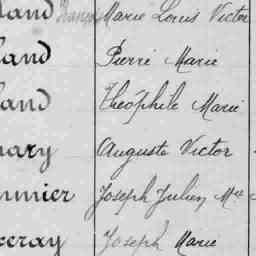 land François Marie Louis Victor
land Pierre Marie
land Théophile Marie
mary Auguste Victor
mmier Joseph Julien Mie
ceray Joseph Marie